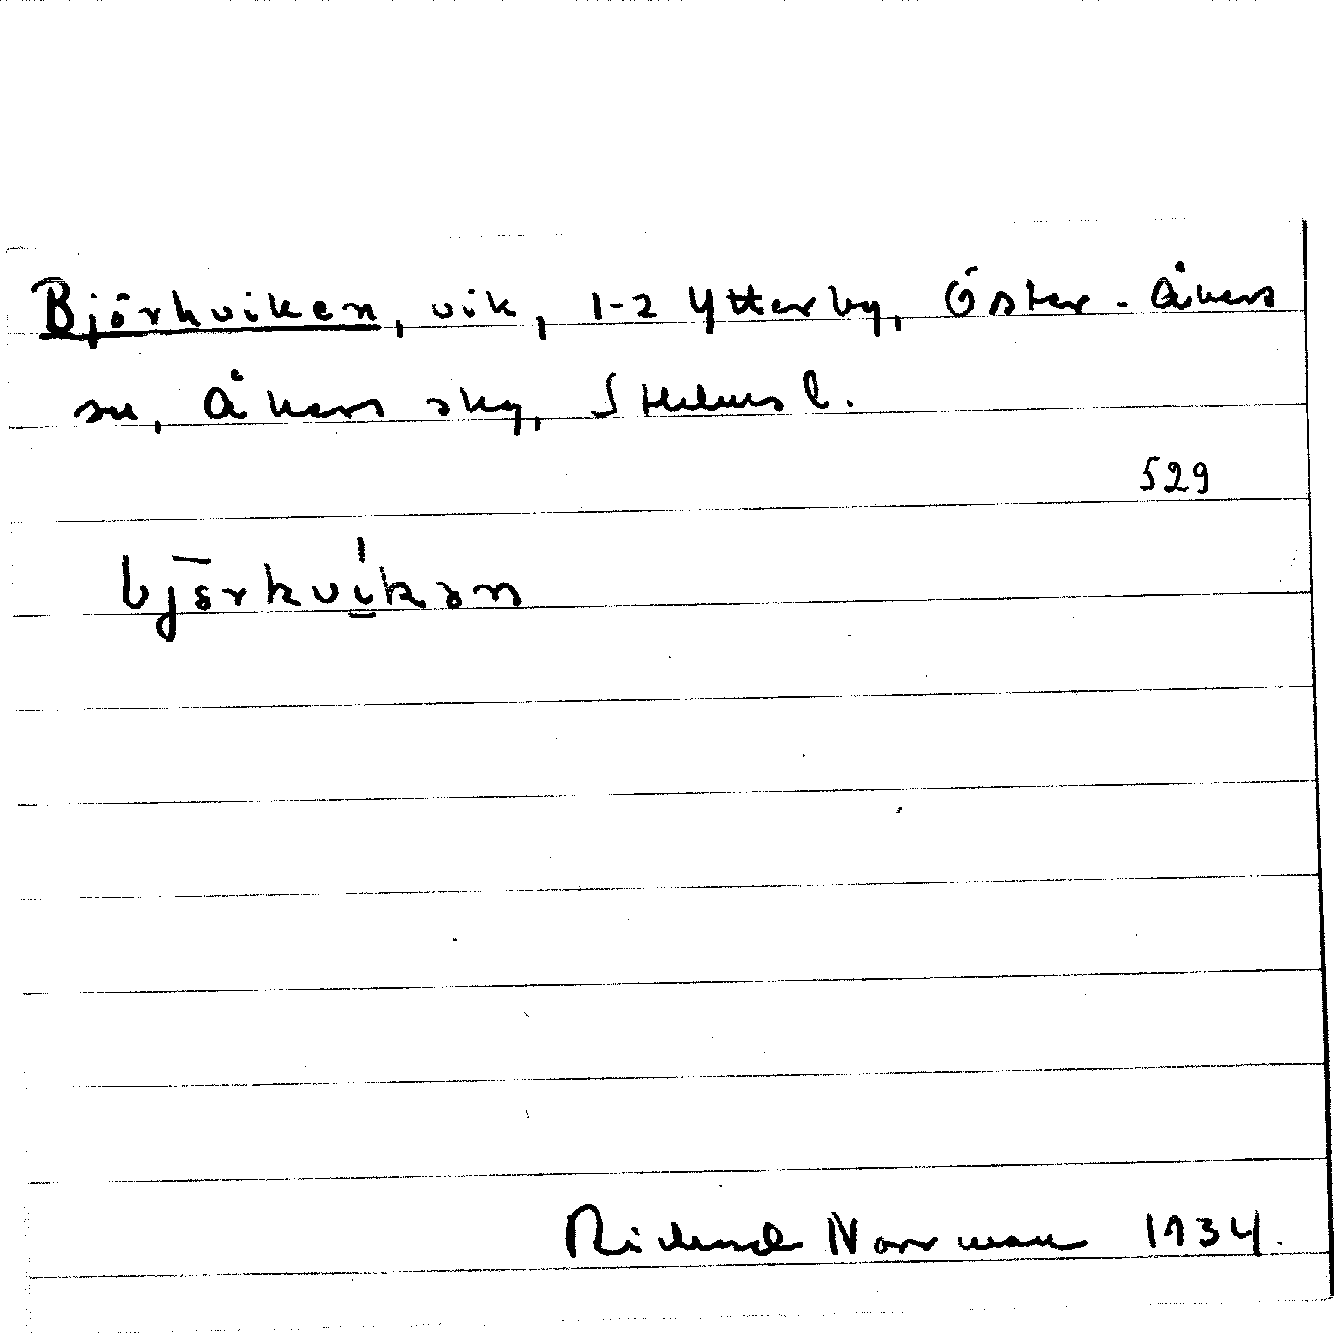 Björkviken, vik, 1-2 Ytterby, Öster-Åkers
sn, Åkers skg, Sthlms l.
529
bjȫrkvi̱̍kən
Richard Norrman 1934.